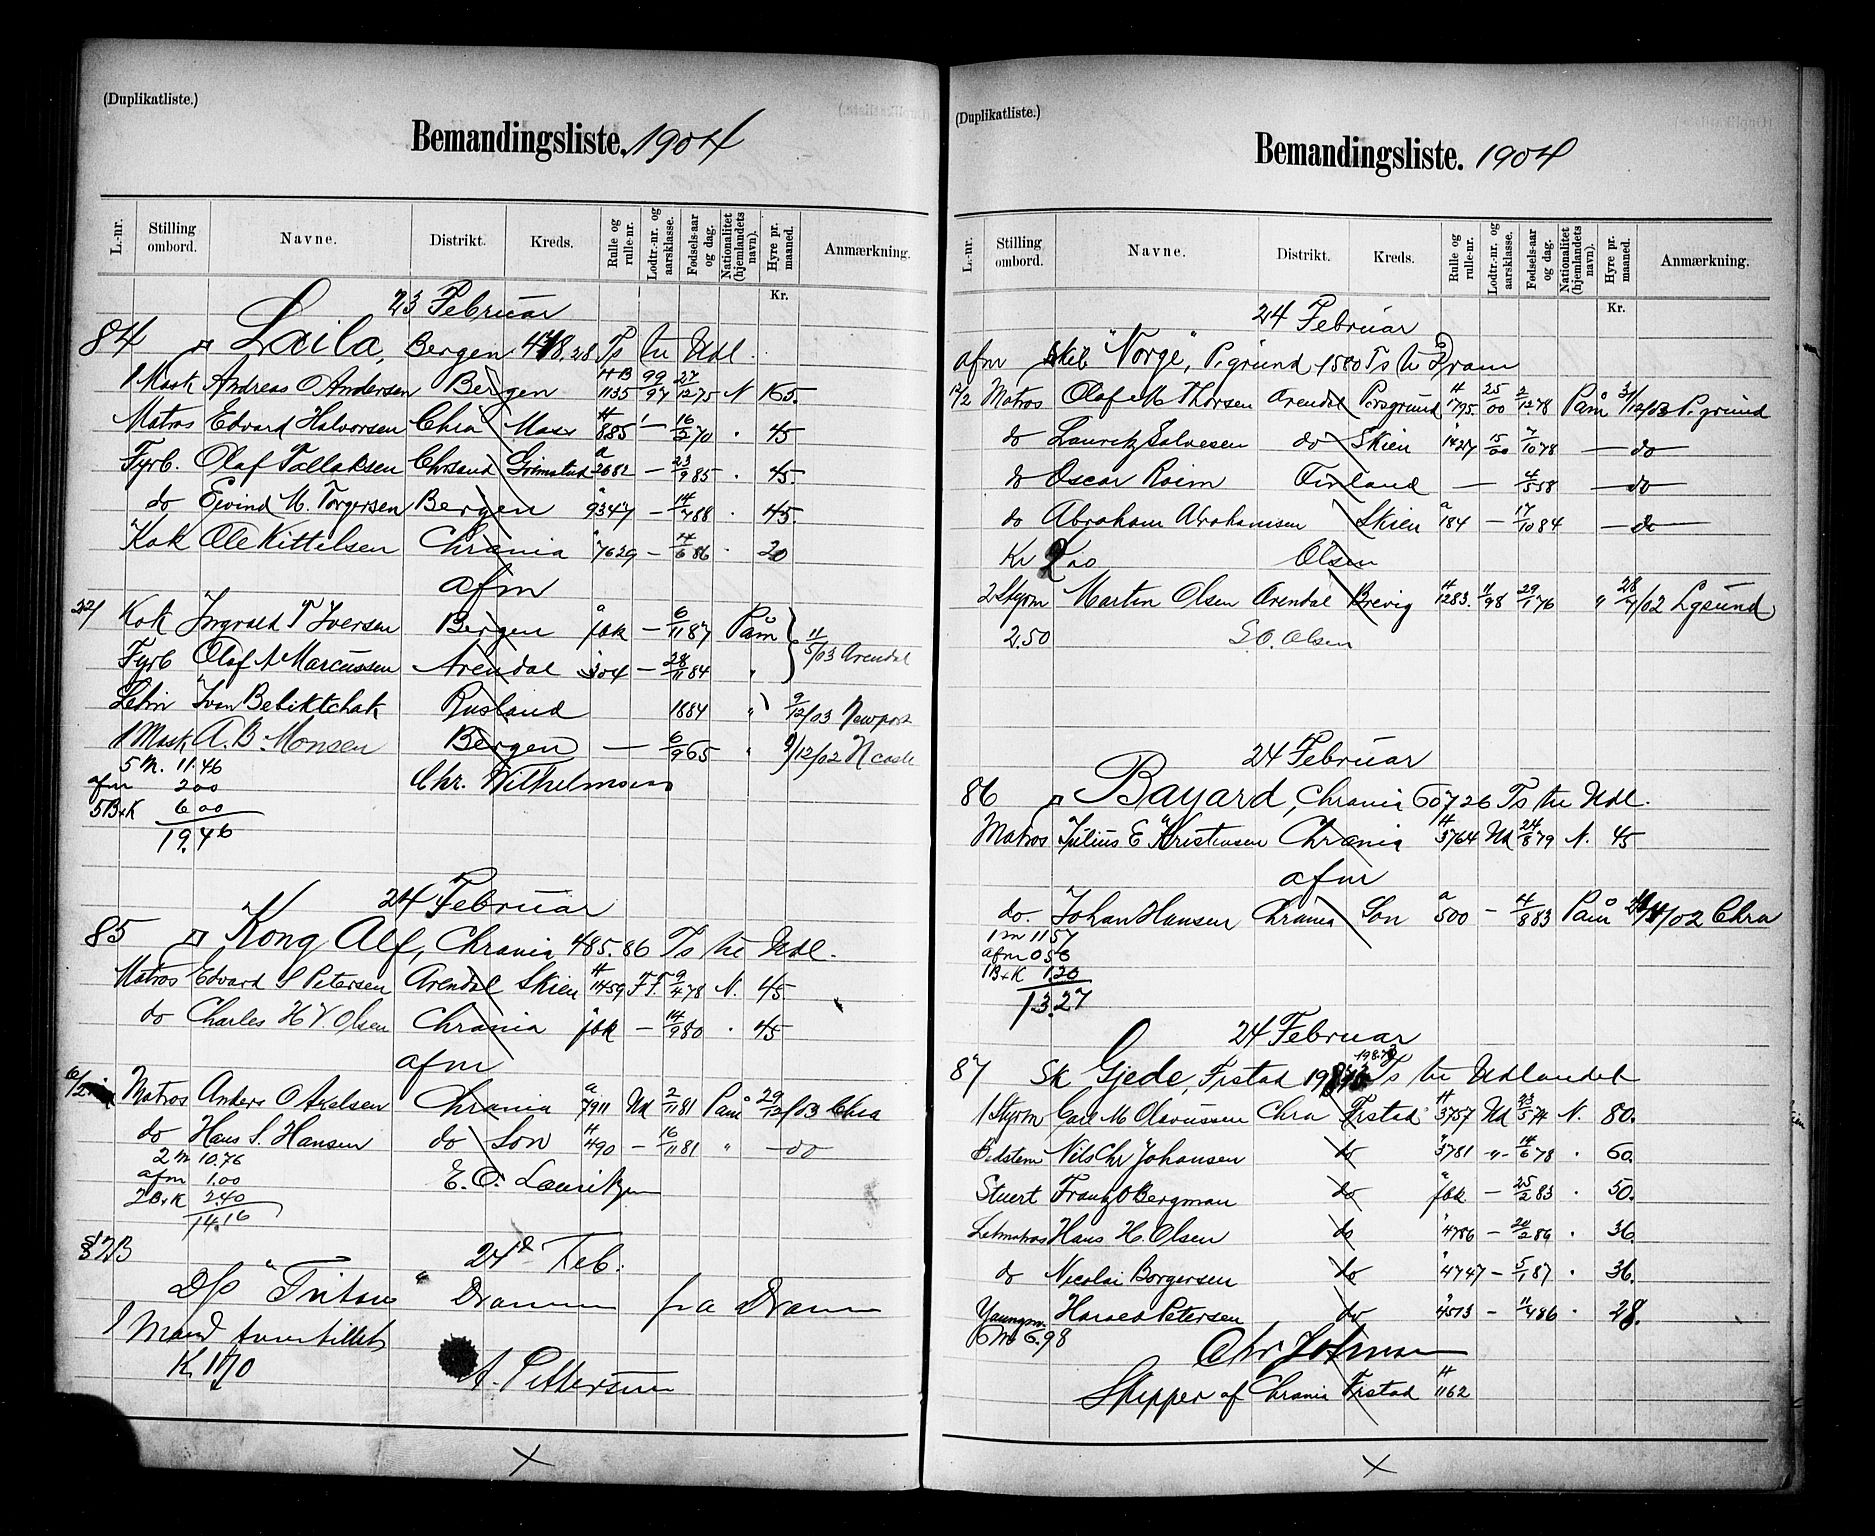 (Duplikatliste.)
Bemandingsliste. 1904
L.-nr. Stilling ombord. Navne. Distrikt. Kreds. Rulle og rulle-nr. Lodtr.-nr. og aarsklasse. Fødsels-aar og dag. Nationalitet (hjemlandets navn). Hyre pr. maaned. Anmærkning.
Kr.
23 Februar
84 Laila, Bergen 478.28 Ts til Udl.
1 Mask Andreas O Andersen Bergen HB 1135 99/97 27/12 75 N 165.
Matros Edvard Halvorsen Chra Moss H 885 — 16/2 70 " 45
Fyrb. Olaf Tallaksen Chrsand Grimstad a 2682 — 23/9 85 " 45.
do Eivind M. Torgersen Bergen " 9347 — 14/7 88 " 45.
Kok Ole Kittelsen Chrania " 7629 — 14/6 86 " 20
afm
22/ Kok Ingvald T Iversen Bergen a fbk — 6/11 87 Påm 11/5/03 Arendal
Fyrb Olaf A Marcussen Arendal 304 — 28/11 84 "
Letm Ivan Beliktchak Rusland 1884 " 9/12/03 Newport
1 Mask A. B. Monsen Bergen — 6/9 65 " 9/12/02 Ncastle
5 M. 11.46
afm 2 00 Chr. Wilhelmsen
5B+K 6 00
19.46
24 Februar
85 Kong Alf, Chrania 485.86 Ts til Udl.
Matros Edvard S Petersen Arendal Skien H 1459 F.F. 9/4 78 N. 45
do Charles H V. Olsen Chrania " fbk — 14/9 80 " 45
afm
Matros Anders O Axelsen Chrania a 7911 Ud 2/11 81 Påm 29/12/03 Chra
do Hans S. Hansen do Son H 490 — 16/11 81 " — do
2 m 10.76
afm 1.00 E. O. Lauritzen
2B+K 2.40
14.16
87B 24d Feb.
D/S "Triton" Drammen fra Drammen
1 Mand
K. 1.70 A. Pettersen
(Duplikatliste.)
Bemandingsliste. 1904
L.-nr. Stilling ombord. Navne. Distrikt. Kreds. Rulle og rulle-nr. Lodtr.-nr. og aarsklasse. Fødsels-aar og dag. Nationalitet (hjemlandets navn). Hyre pr. maaned. Anmærkning.
Kr.
24 Februar
afm Skib "Norge", P.grund 1580 Ts til Dram
12/2 Matros Olaf M Thorsen Arendal Porsgrund H 1795. 25/00 2/12 78 Påm 31/12/03 P.grund
do Lauritz Salvesen do Skien " 1427 15/00 7/10 78 — do —
do Oscar Roim Finland — 4/5 58 — do —
do Abraham Abrahamsen Skien a 184 — 17/10 84 — do —
Kr 2 00 Olsen
2 Styrm Martin Olsen Arendal Brevig H 1283. 11/98 29/1 76 " 28/7/02 Lgsund
2.50 S. O. Olsen
24 Februar
86 Bayard, Chrania 607 26 Ts til Udl.
Matros Julius E Kristensen Chrania H 3764 Ud 24/8 79 N. 45
afm
do. Johan Hansen Chrania Son a 500 — 4/8 83 Påm /02 Chra
1 m 11 57
afm 0 50
1B+K 1.20
13.27
24 Februar
87 Sk Gjede, Frstad 198.73 Ts til Udlandet
1 Styrm Carl M Olavussen Chra Frstad H 3757 Ud 23/5 74 N. 80.
Bdstem Nils Chr Johansen do " 3781 " 14/6 78 " 60.
Stuert Frantz O Bergman do a fbk — 25/2 83 " 50.
Letmatros Hans H. Olsen do " 4786 — 20/2 86 " 36
do Nicolai Borgersen do " 4747 — 5/1 87 " 36.
Youngm. Harald Petersen do " 4513 — 11/4 86 " 28.
6 m 6.98
Chr Johnsen
Skipper af Chrania Frstad H 1162